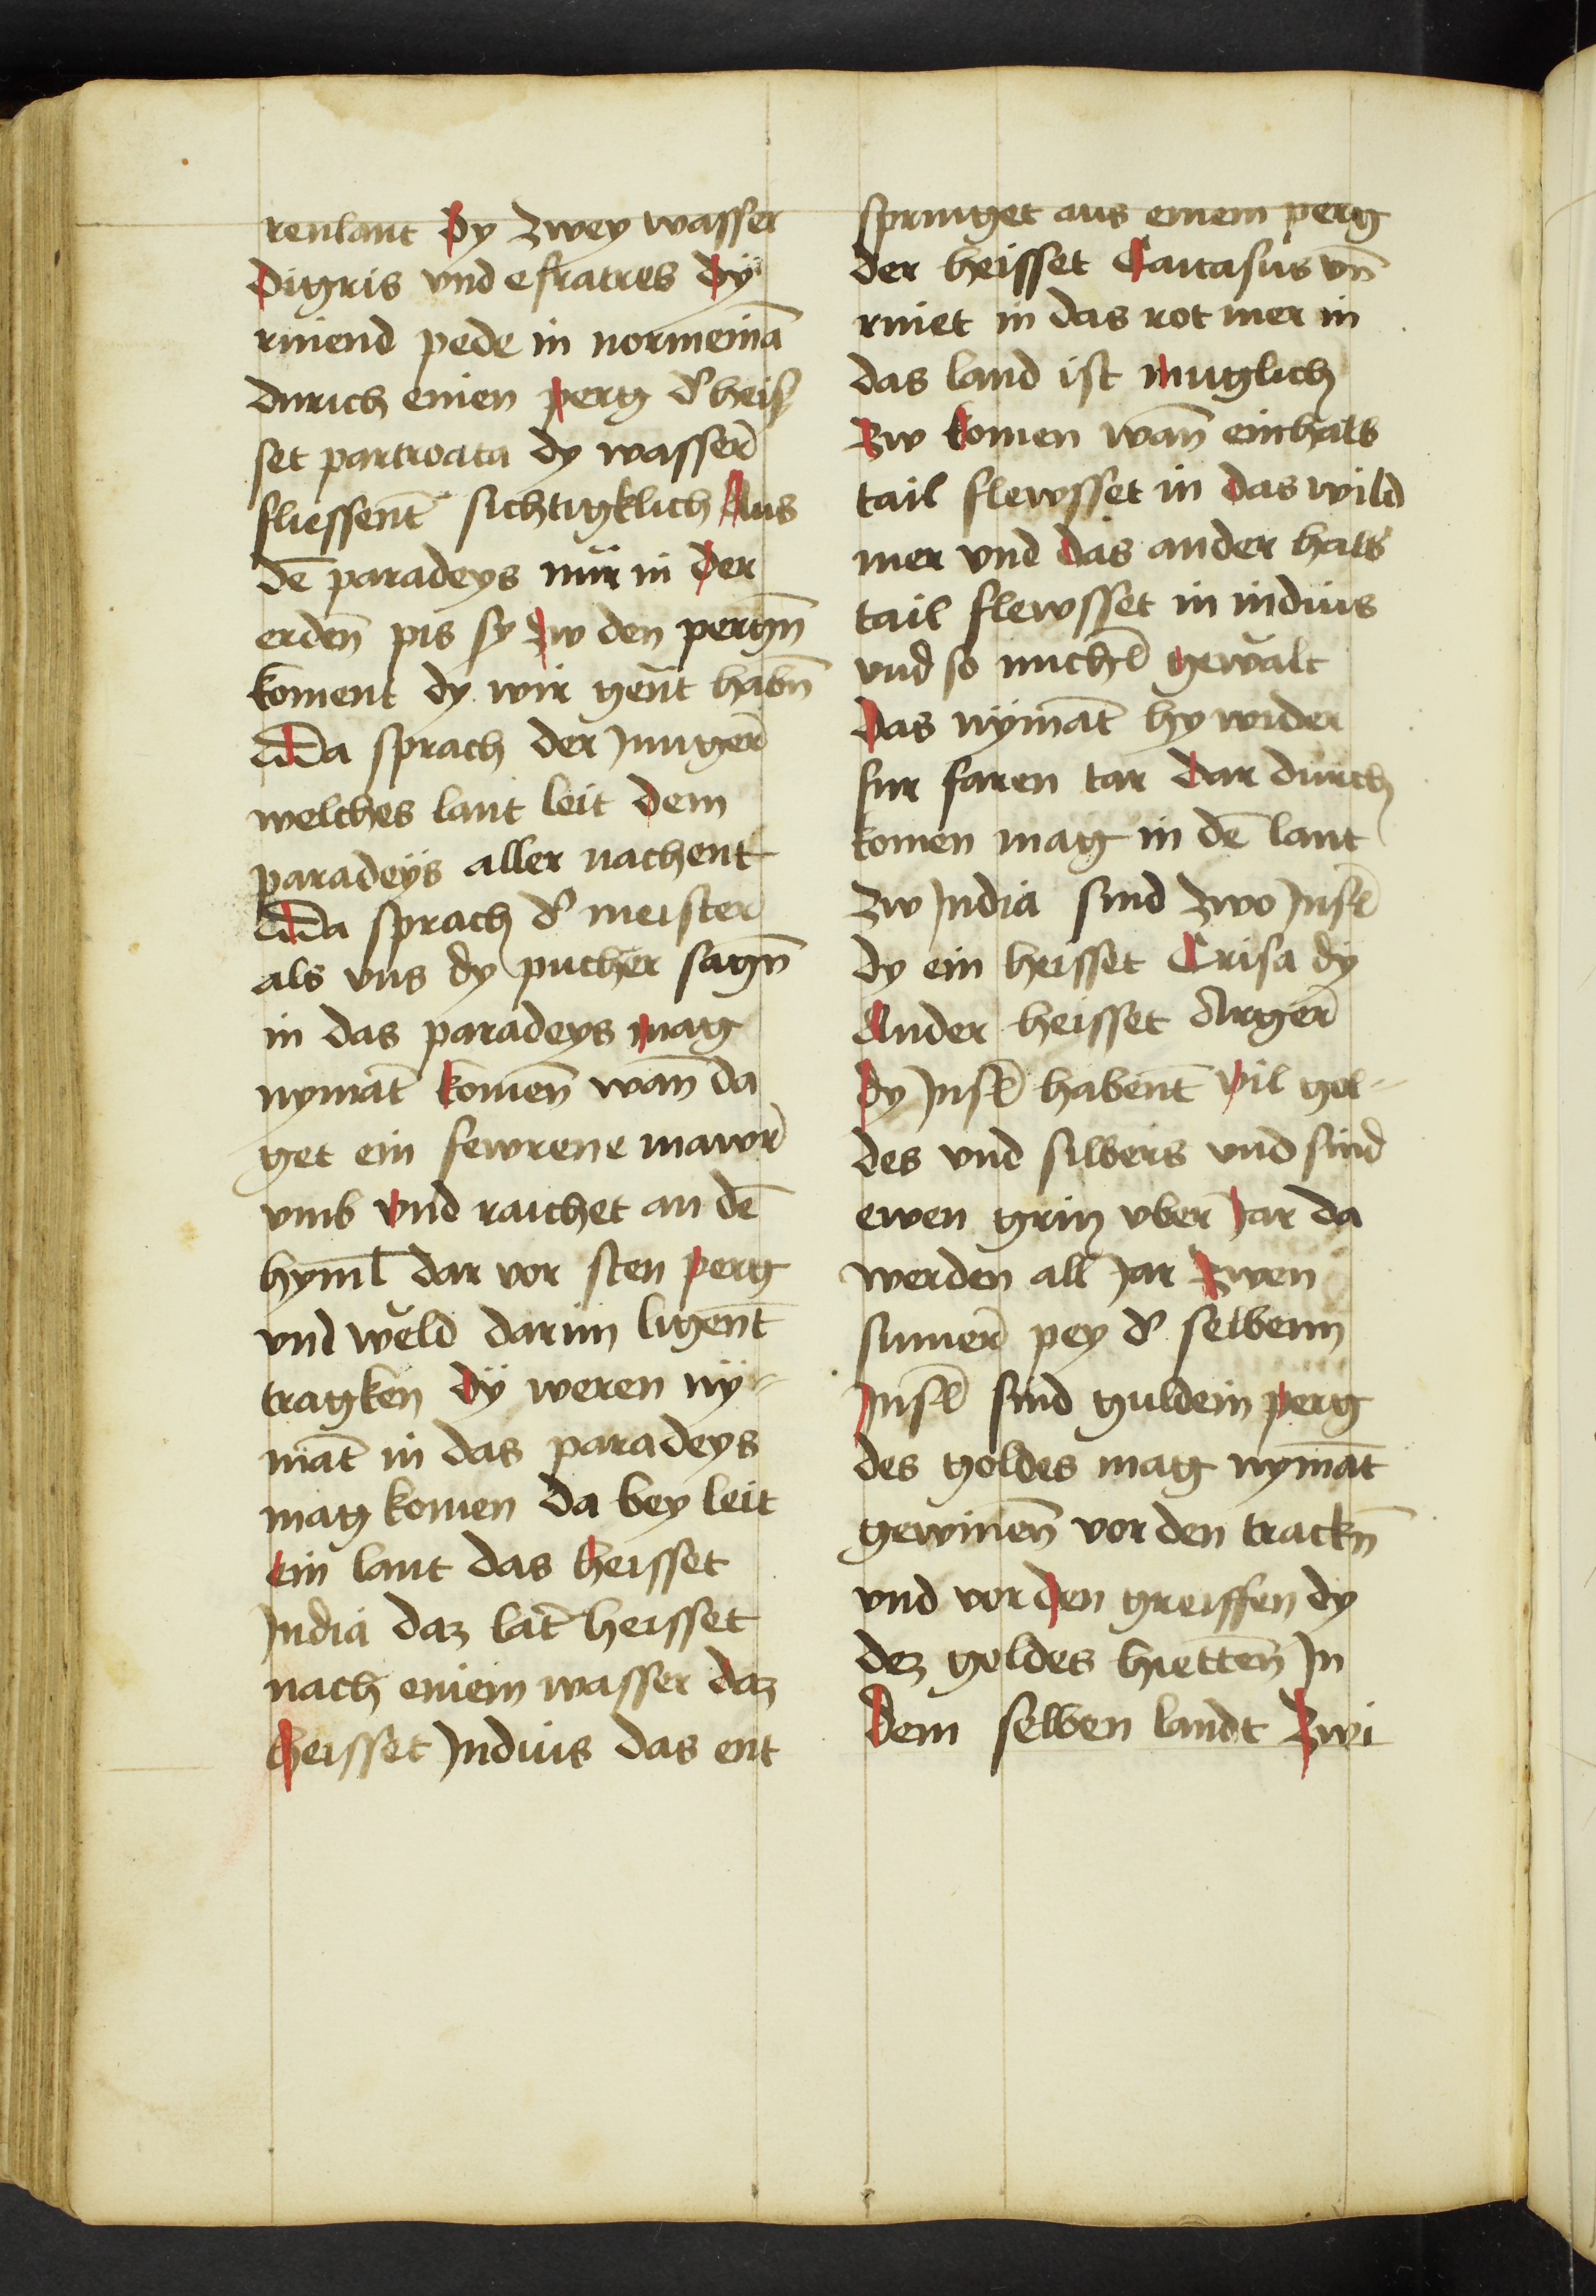 renlant Dy zwey wasser
Digris vnd efratres dÿ
rinend pede in normeinā
durich einen perg d᾽ heis
set partroata dy wasser̄
fliessent̄ sichtigklich Aus
dē paradeys nür in der
erden̄ pis sy zw den pergn̄
koment dy wir gen̄t habn̄
Da sprach der Junger̄
welches lant leit dem
paradeÿs aller nachent
Da sprach d᾽ meister̄
als vns dy pucher sagn̄
in das paradeys mag
nymāt komen̄ wan̄ da
get ein fewrene mawr̄
vmb vnd raichet an dē
hyml̄ dar vor sten perg
vnd weld darinn ligen̄t
tragken dÿ weren nÿ-
māt in das paradeys
mag komen da bey leit
ein lant das heisset
Jndia daz lāt heisset
nach einem wasser daz
heisset Jndius das ent
springet aus einem perg
der heisset Cartasus vn̄
rniet in das rot mer in
das land ist muglich
zw komen wan̄ einhalb
tail flewsset in das wild
mer vnd das ander halb
tail flewsset in indius
vnd so michl̄ gewalt
Das nÿmāt hy wider
fur faren tar dar durch
komen mag in dē lant
zw Jndia sind zwo Jnsl̄
dy ein heisset Crisa dÿ
Ander heisset Arger̄
dy Jnsl̄ haben̄t vil gol-
des vnd silbers vnd sind
ewen grin vber Jar da
werden all Jar zwen
sumer̄ pey d᾽ selbenn
Jnsl̄ sind guldein perg
des goldes mag nymāt
gewinen̄ vor den trackn̄
vnd vor den greiffen dy
dez goldes hietten̄ Jn
Dem selben landt zwi